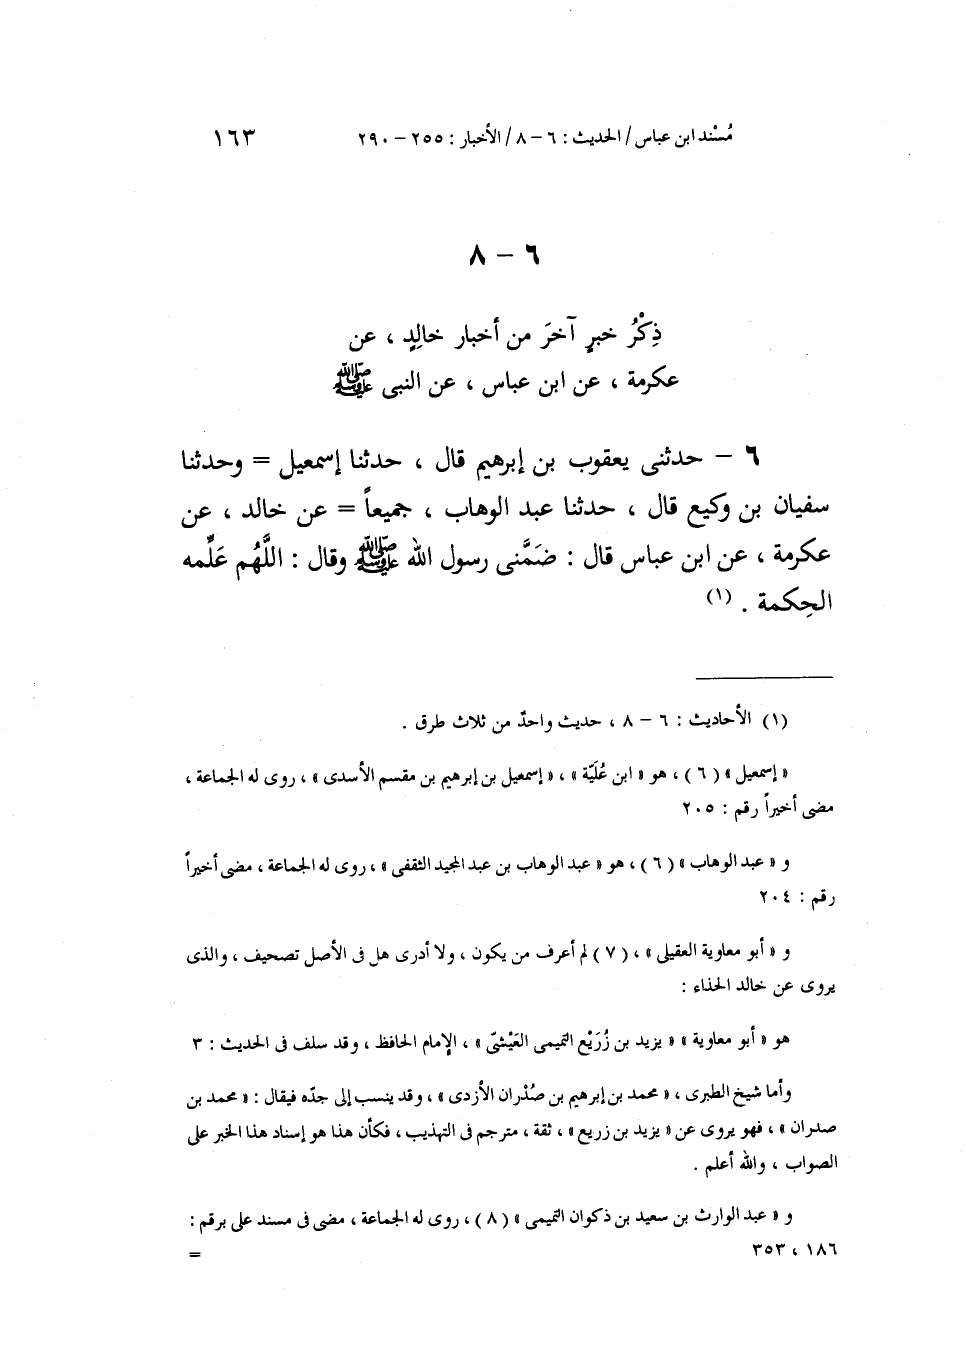 مُسْند ابن عباس / الحديث : ٦ – ٨ / الأخبار : ٢٥٥ – ٢٩٠ ١٦٣
٦ – ٨
ذِكْرُ خبرٍ آخرَ من أخبار خالِدٍ ، عن
عكرمة ، عن ابن عباس ، عن النبى ﷺ
٦ – حدثنى يعقوب بن إبرهيم قال ، حدثنا إسمعيل = وحدثنا
سفيان بن وكيع قال ، حدثنا عبد الوهاب ، جميعاً = عن خالد ، عن
عكرمة ، عن ابن عباس قال : ضَمَّنى رسول الله ﷺ وقال : اللَّهُم عَلِّمه
الحِكمة . (١)
(١) الأحاديث : ٦ – ٨ ، حديث واحدٌ من ثلاث طرق .
« إسمعيل » ( ٦ ) ، هو « ابن عُلَيّة » ، « إسمعيل بن إبرهيم بن مقسم الأسدى » ، روى له الجماعة ،
مضى أخيراً رقم : ٢٠٥
و « عبد الوهاب » ( ٦ ) ، هو « عبد الوهاب بن عبد المجيد الثقفى » ، روى له الجماعة ، مضى أخيراً
رقم : ٢٠٤
و « أبو معاوية العقيلى » ، ( ٧ ) لم أعرف من يكون ، ولا أدرى هل فى الأصل تصحيف ، والذى
يروى عن خالد الحذاء :
هو « أبو معاوية » « يزيد بن زُرَيْع التميمى العَيْشىّ » ، الإمام الحافظ ، وقد سلف فى الحديث : ٣
وأما شيخ الطبرى ، « محمد بن إبرهيم بن صُدْران الأزدى » ، وقد ينسب إلى جدّه فيقال : « محمد بن
صدران » ، فهو يروى عن « يزيد بن زريع » ، ثقة ، مترجم فى التهذيب ، فكأن هذا هو إسناد هذا الخبر على
الصواب ، والله أعلم .
و « عبد الوارث بن سعيد بن ذكوان التميمى » ( ٨ ) ، روى له الجماعة ، مضى فى مسند على برقم :
١٨٦ ، ٣٥٣ =